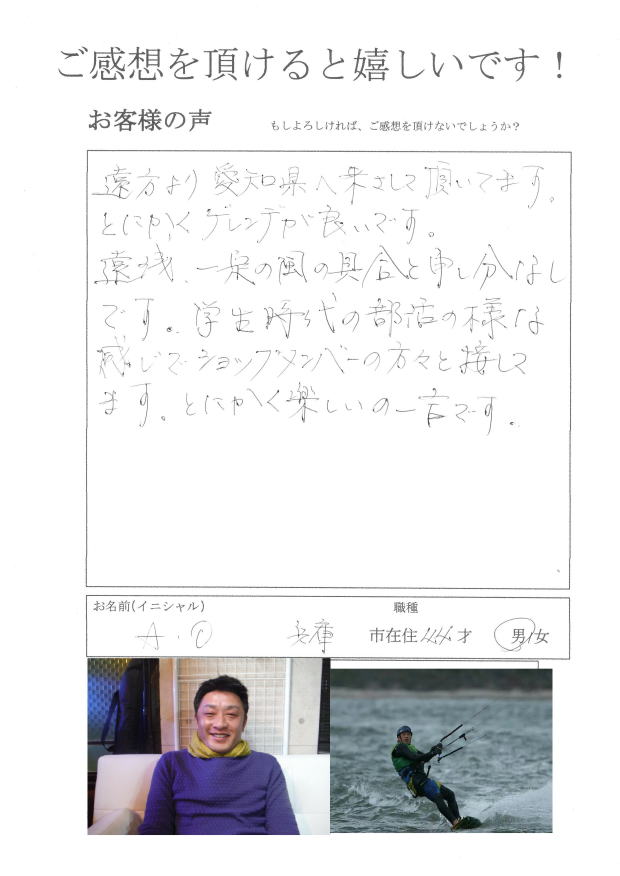 ご感想を頂けると嬉しいです！
お客様の声 もしよろしければ、ご感想を頂けないでしょうか？
遠方より愛知県へ来さして頂いてます。
とにかくゲレンデが良いです。
遠浅、一定の風の具合と申し分なし
です。学生時代の部活の様な
感じでショップメンバーの方々と接して
ます。とにかく楽しいの一言です。
お名前(イニシャル) 職種
A.O 兵庫 市在住 44才 男/女